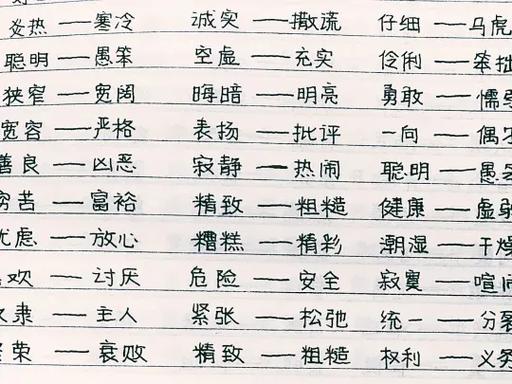 炎热——寒冷 诚实——撒谎 仔细——马虎
聪明——愚笨 空虚——充实 伶俐——笨拙
狭窄——宽阔 晦暗——明亮 勇敢——懦
宽容——严格 表扬——批评 一向——偶
善良——凶恶 寂静——热闹 聪明——愚
苦——富裕 精致——粗糙 健康——虚
忧虑——放心 糟糕——精彩 潮湿——干燥
欢——讨厌 危险——安全 寂寞——喧
隶——主人 紧张——松弛 统一——分裂
荣——衰败 精致——粗糙 权利——义务